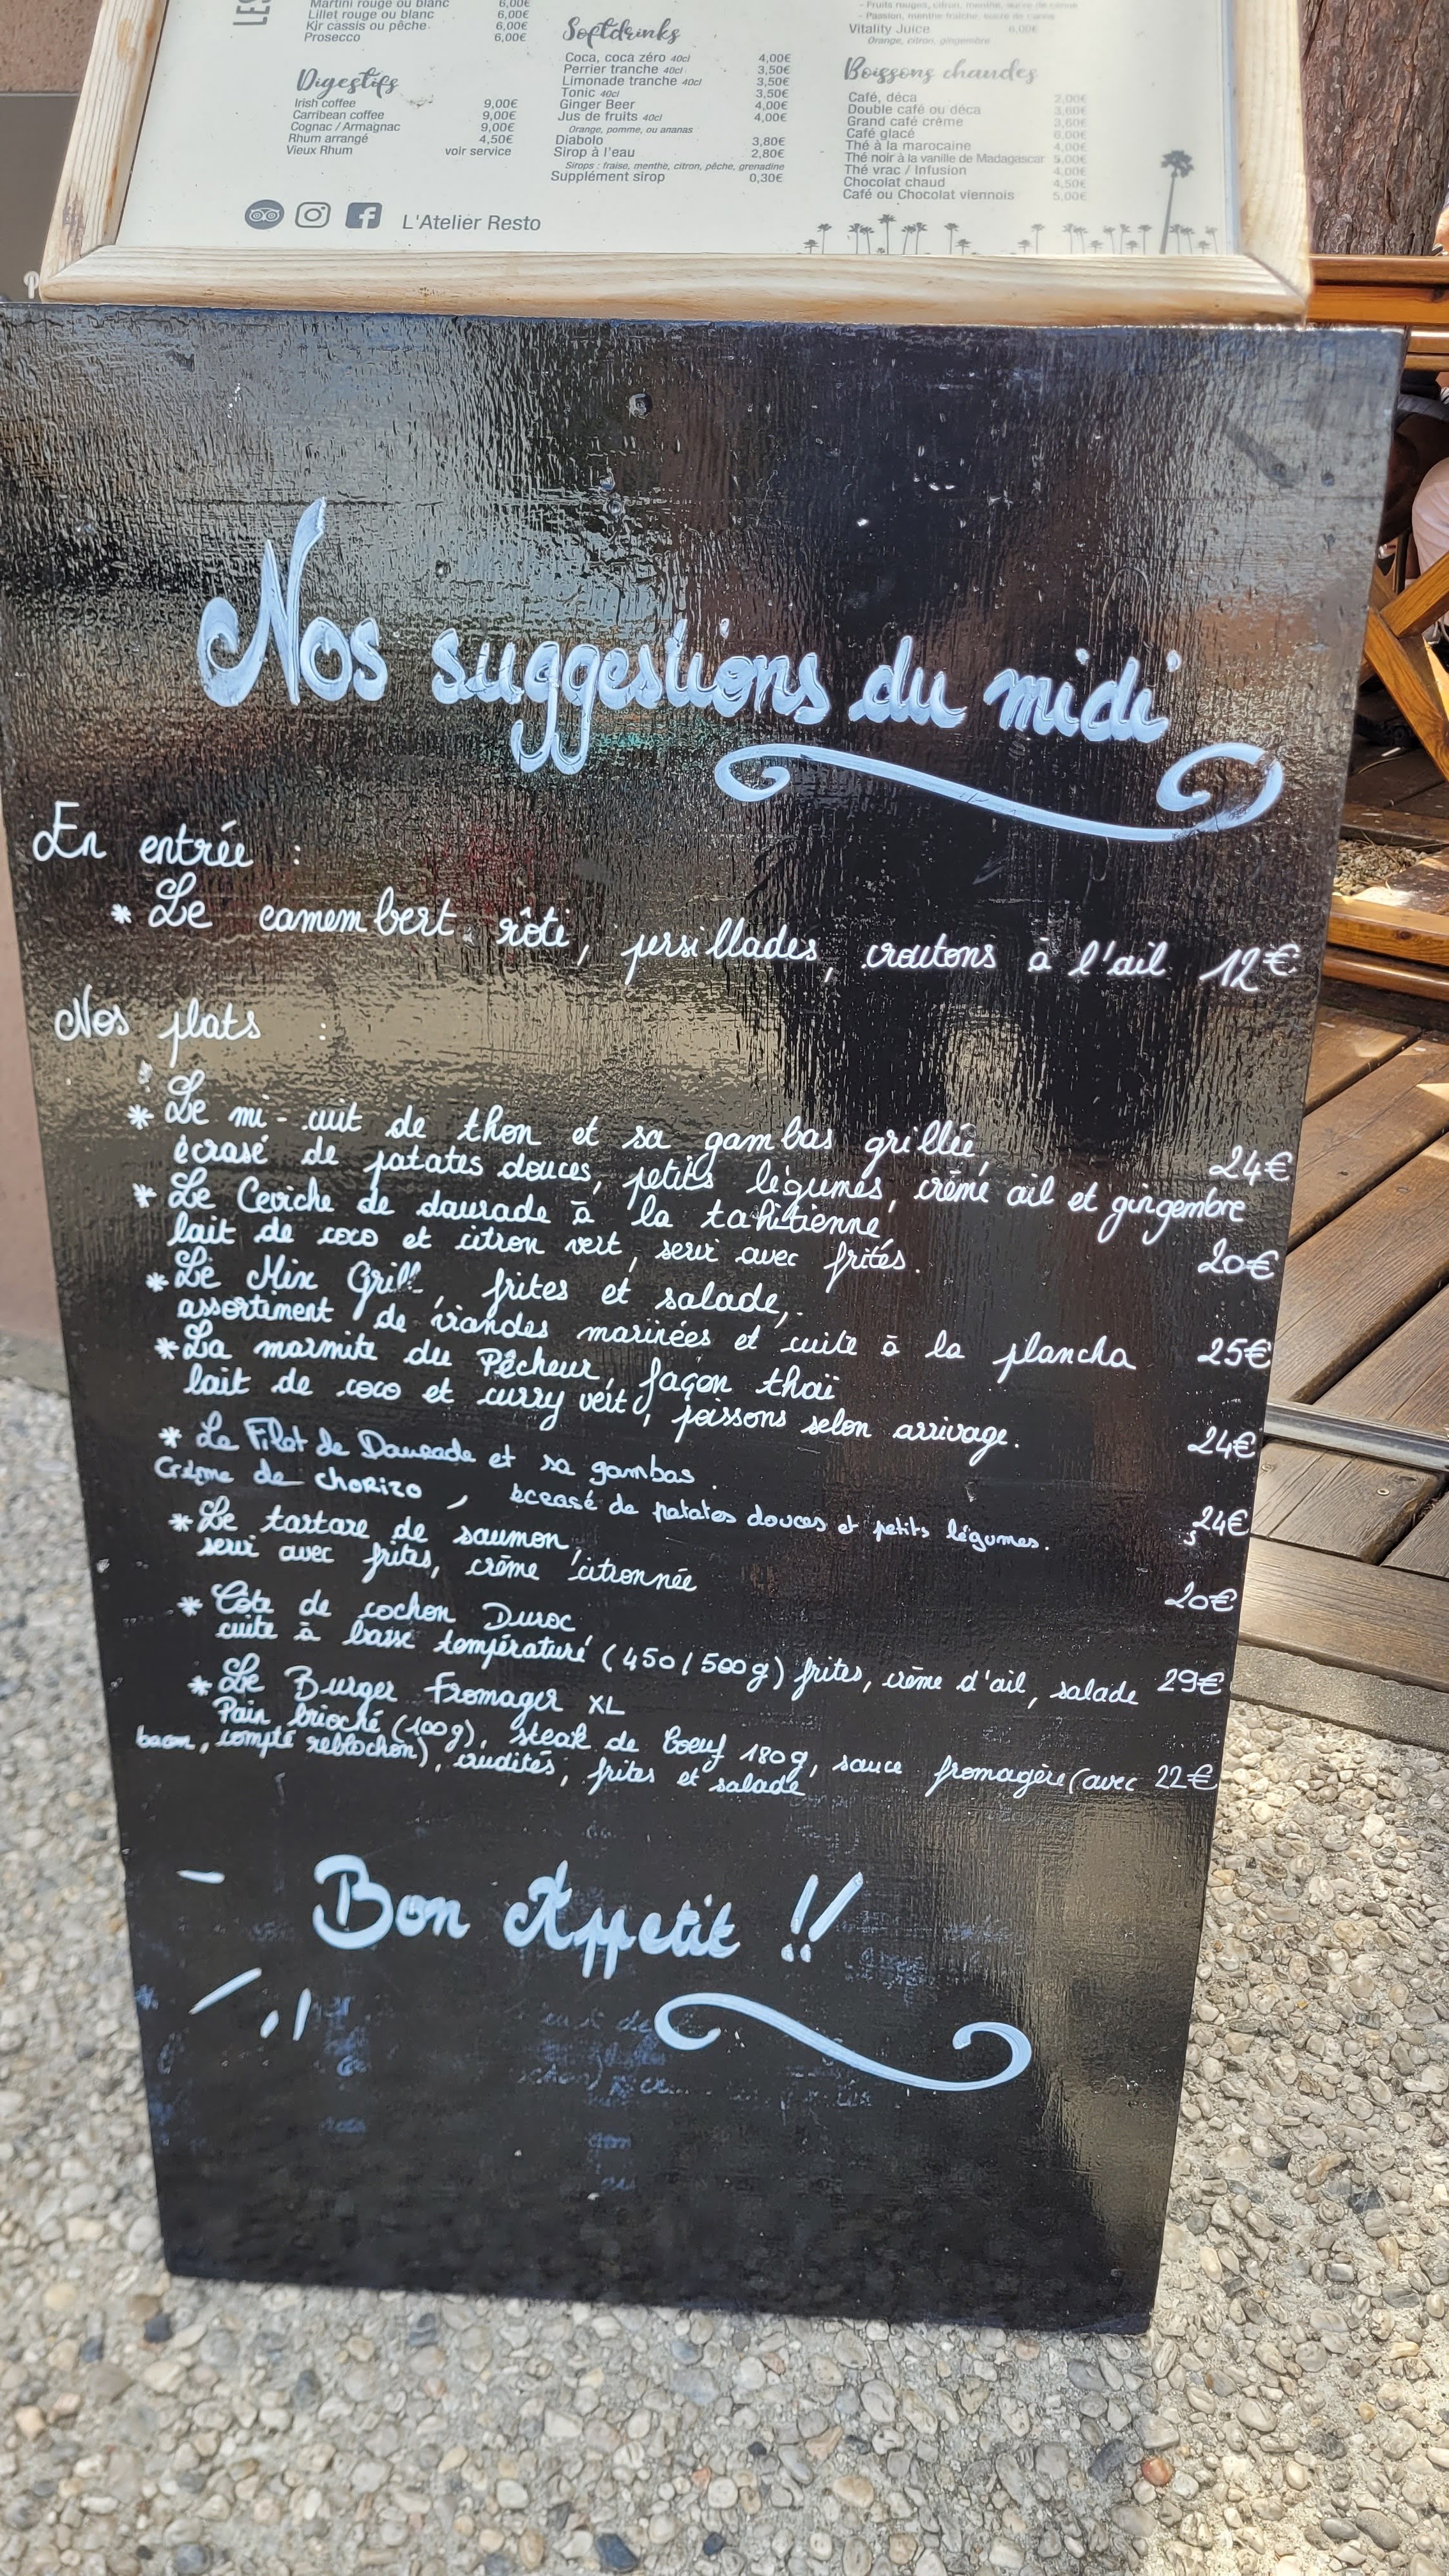 LES
Martini rouge ou blanc 6,00€
Lillet rouge ou blanc 6,00€
Kir cassis ou pêche 6,00€
Prosecco 6,00€
Digestifs
Irish coffee 9,00€
Carribean coffee 9,00€
Cognac / Armagnac 9,00€
Rhum arrangé 4,50€
Vieux Rhum voir service
Softdrinks
Coca, coca zéro 40cl 4,00€
Perrier tranche 40cl 3,50€
Limonade tranche 40cl 3,50€
Tonic 40cl 3,50€
Ginger Beer 4,00€
Jus de fruits 40cl 4,00€
Orange, pomme, ou ananas
Diabolo 3,80€
Sirop à l'eau 2,80€
Sirops : fraise, menthe, citron, pêche, grenadine
Supplément sirop 0,30€
- Fruits rouges, citron, menthe, sucre de canne
- Passion, menthe fraîche, sucre de canne
Vitality Juice 6,00€
Orange, citron, gingembre
Boissons chaudes
Café, déca 2,00€
Double café ou déca 3,60€
Grand café crème 3,60€
Café glacé 6,00€
Thé à la marocaine 4,00€
Thé noir à la vanille de Madagascar 5,00€
Thé vrac / Infusion 4,00€
Chocolat chaud 4,50€
Café ou Chocolat viennois 5,00€
L'Atelier Resto
Nos suggestions du midi
En entrée :
* Le camembert rôti, persillades, croutons à l'ail 12€
Nos plats :
* Le mi-cuit de thon et sa gambas grillée,
écrasé de patates douces, petits légumes, crème ail et gingembre 24€
* Le Ceviche de daurade à la tahitienne,
lait de coco et citron vert, servi avec frites. 20€
* Le Mix Grill, frites et salade,
assortiment de viandes marinées et cuite à la plancha 25€
* La marmite du Pêcheur, façon thaï
lait de coco et curry vert, poissons selon arrivage. 24€
* Le Filet de Daurade et sa gambas.
Crème de chorizo, écrasé de patates douces et petits légumes. 24€
* Le tartare de saumon,
servi avec frites, crème citronnée 20€
* Côte de cochon Duroc
cuite à basse température (450/500g) frites, crème d'ail, salade 29€
* Le Burger Fromager XL
Pain brioché (100g), steak de boeuf 180g, sauce fromagère (avec 22€
bacon, compté reblochon), crudités, frites et salade
Bon Appetit !!